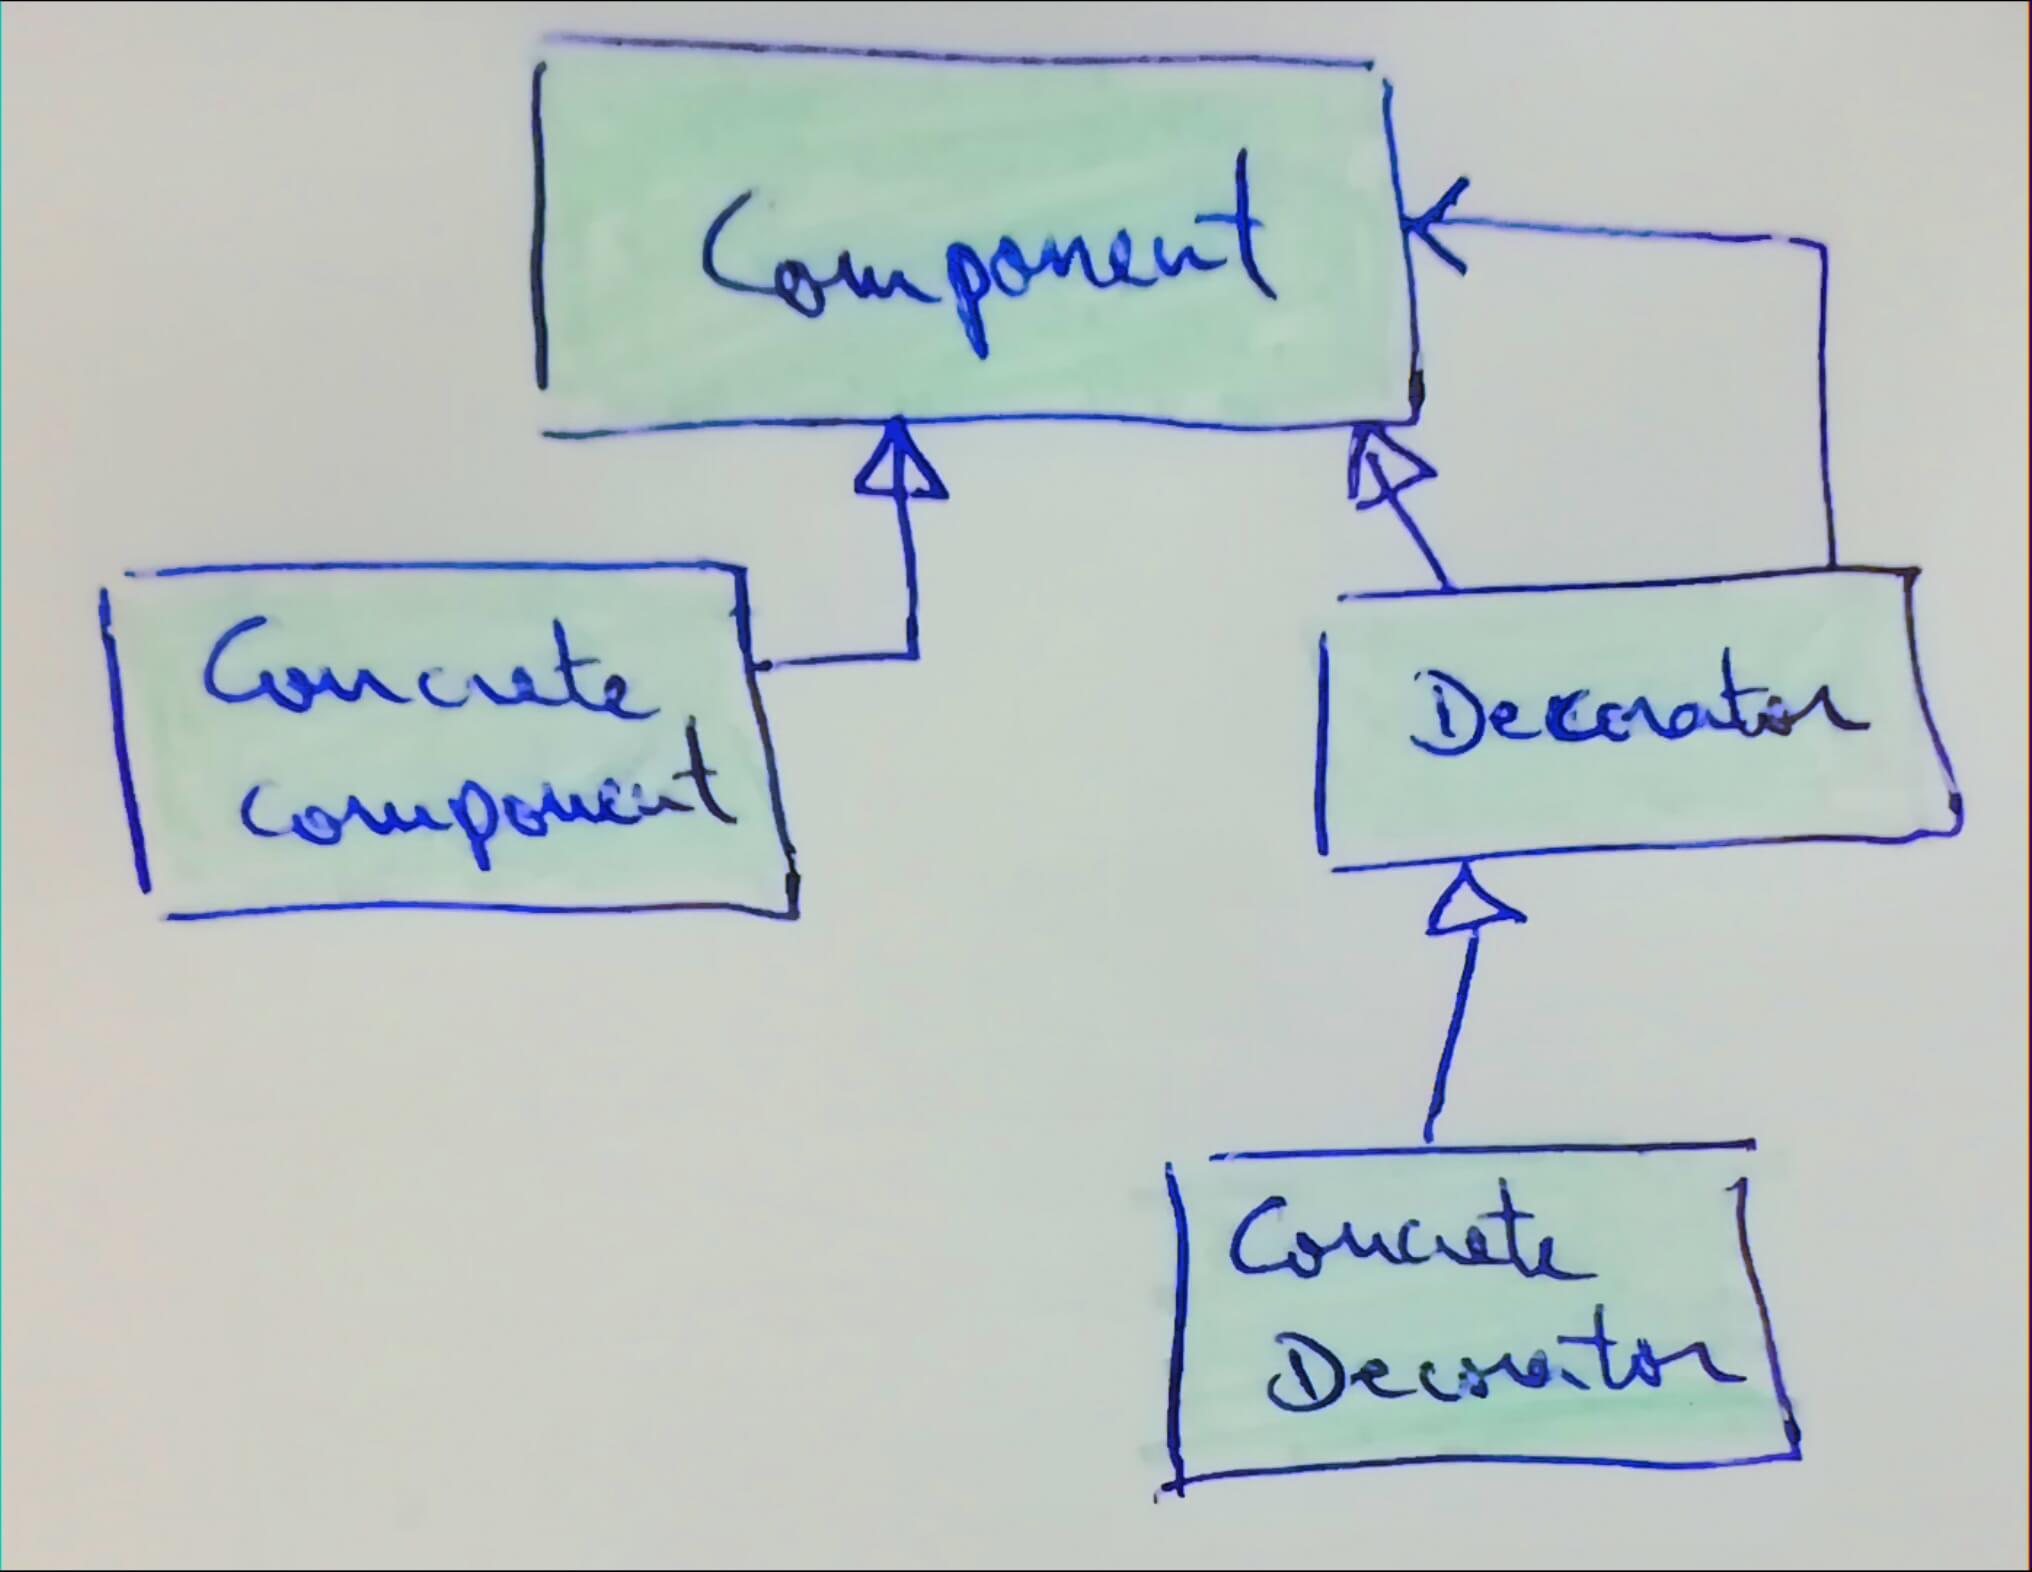 Component
Concrete
component
Decorator
Concrete
Decorator